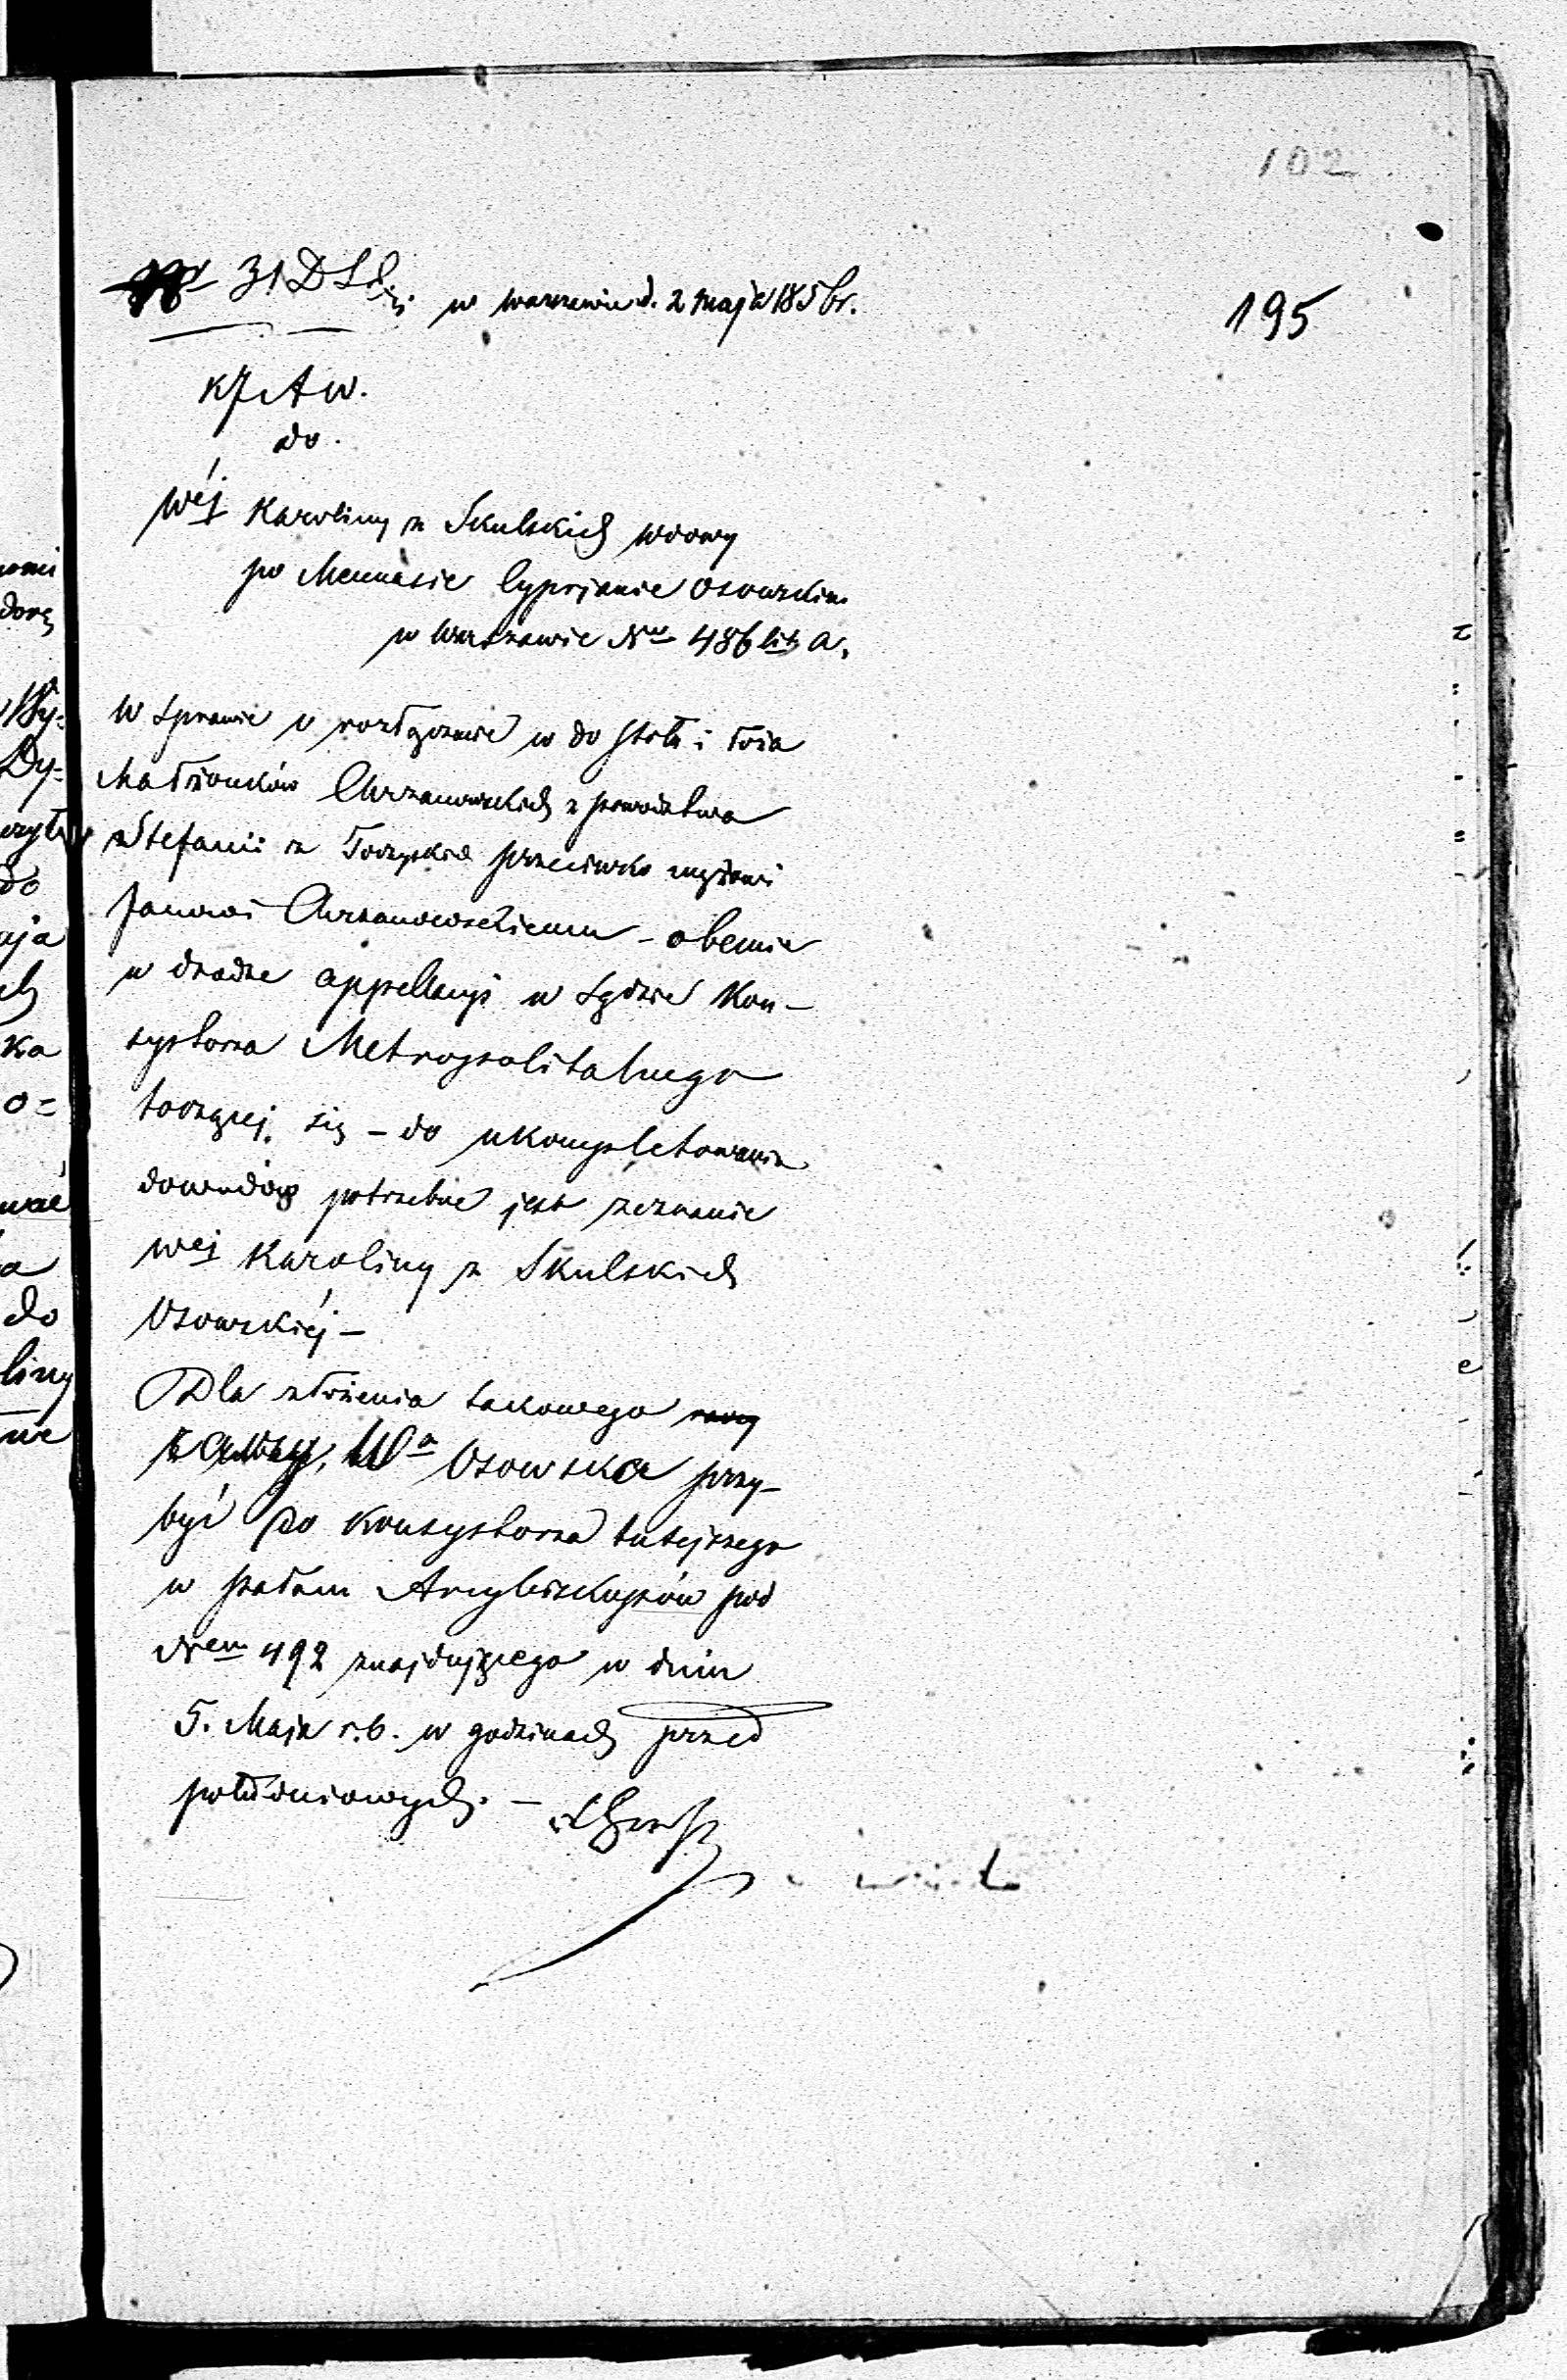 102
195
31 D S d. w Warszawie d. 2 Maja 1856 r.
K J A W.
do.
Wéj Karoliny z Skulskich wdowy
po Mecenasie Cyprianie Osowskim
w Warszawie Nr 486 lit. a.
W sprawie o rozłączenie w do stołu i łoża
Małżonków Chrzanowskich z powodztwa
Stefanii z Toczyskich przeciwko mężowi
Janowi Chrzanowskiemu – obecnie
w drodze appellacyi w Sądzie Kon-
systorza Metropolitalnego
toczącej się – do ukompletowania
dowodów potrzebne jest zeznanie
Wej Karoliny z Skulskich
Osowskiéj –
Dla złożenia takowego
Wa Osowska przy-
być do Konsystorza tutejszego
w pałacu Arcybiskupów pod
Nrem 492 znajdującego w dniu
5. Maja r. b. w godzinach przed
południowych. –